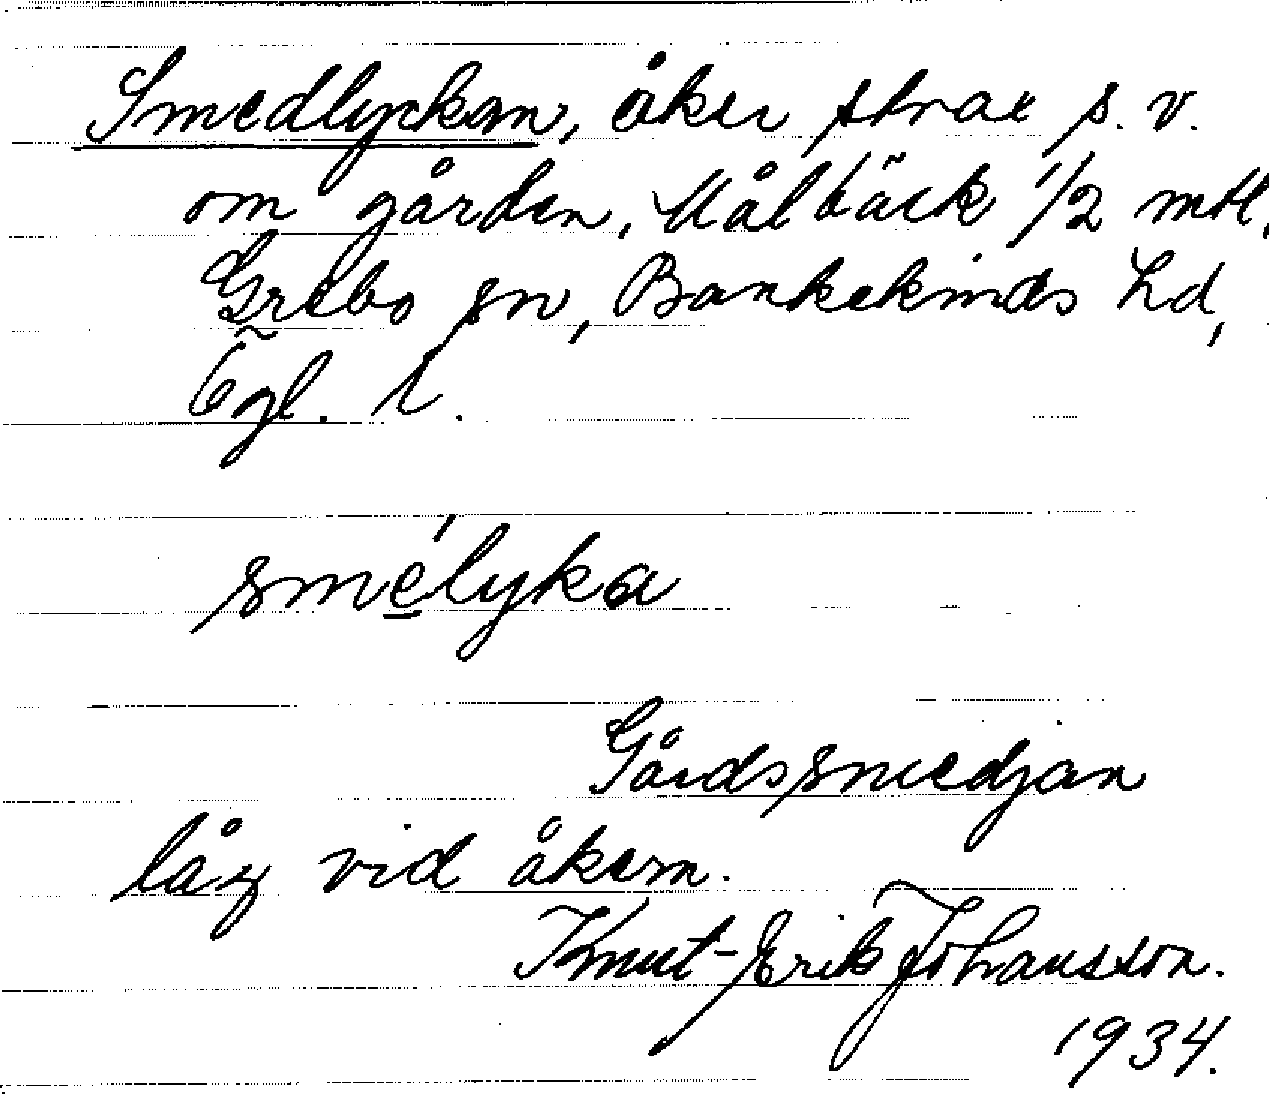 Smedlyckan, åker strax s. v.
om gården, Målbäck 1/2 mtl,
Grebo sn, Bankekinds hd,
Ögl. l.
smélyka
Gårdssmedjan
låg vid åkern.
Knut-Erik Johansson.
1934.